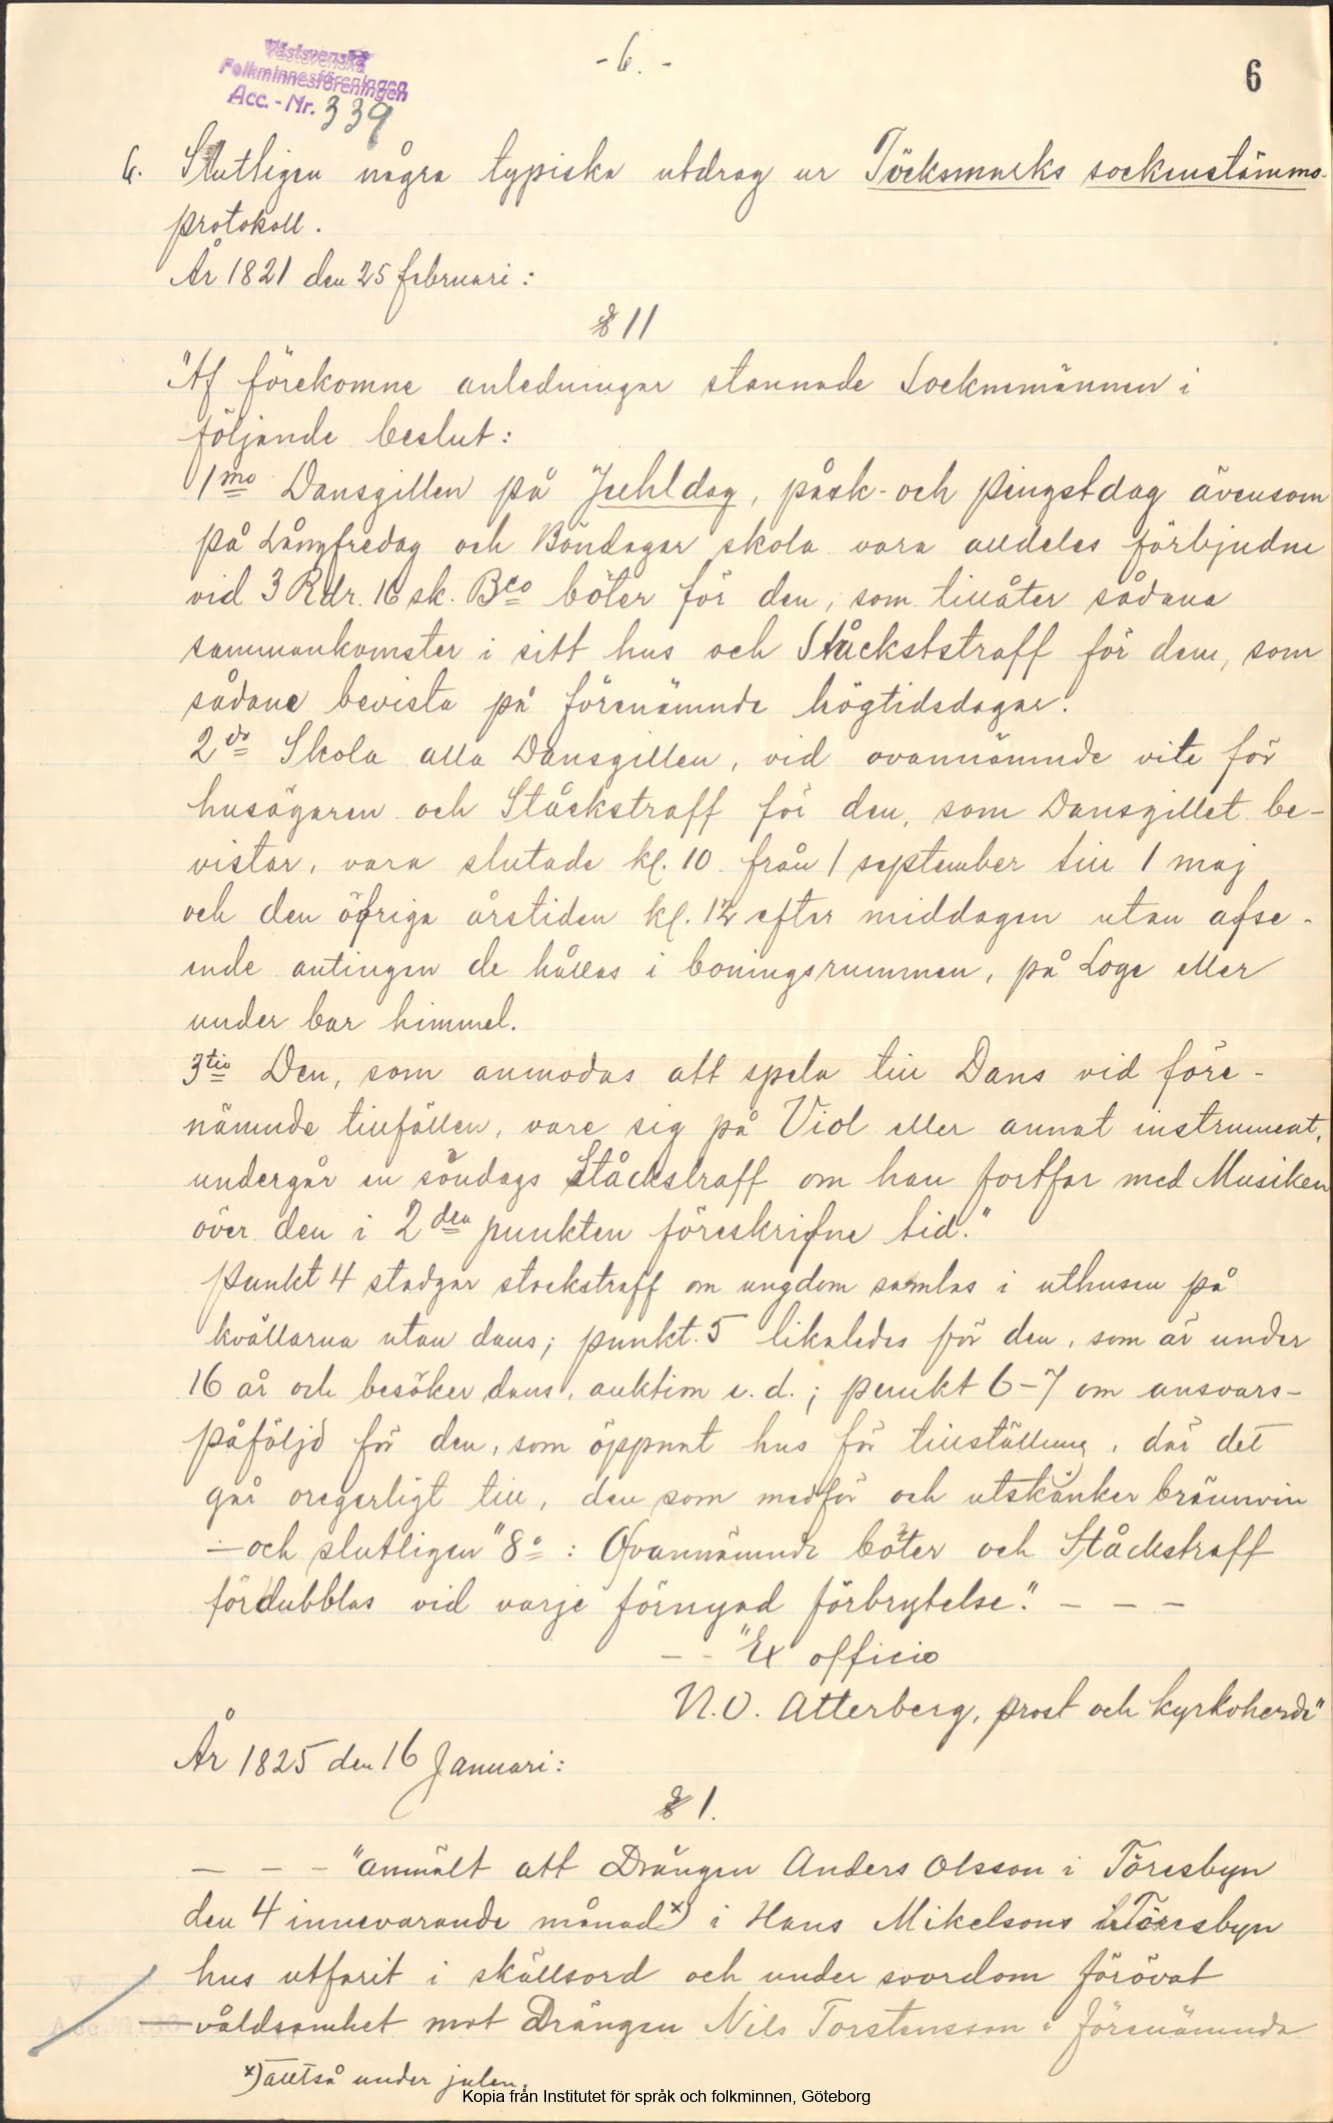 Västsvenska
Folkminnesföreningen
Acc.-Nr. 339
-6.-
6
6. Slutligen några typiska utdrag ur Töcksmarks sockenstämmo-
protokoll.
År 1821 den 25 februari:
§ 11
"Af förekomne anledningar stannade Socknemännen i
följande beslut:
1mo Dansgillen på Juhldag, påsk- och Pingstdag ävensom
på Långfredag och Böndagar skola vara alldeles förbjudne
vid 3 Rdr. 16 sk. Bco böter för den, som tillåter sådana
sammankomster i sitt hus och Ståckststraff för dem, som
sådane bevista på förenämnde högtidsdagar.
2do Skola alla Dansgillen, vid ovannämnde vite för
husägaren och Ståckstraff för den, som Dansgillet be-
vistar, vara slutade kl. 10 från 1 september till 1 maj
och den öfriga årstiden kl. 12 efter middagen utan afse-
ende antingen de hållas i boningsrummen, på Loge eller
under bar himmel.
3tio Den, som anmodas att spela till Dans vid före-
nämnde tillfällen, vare sig på Viol eller annat instrument,
undergår en söndags Ståckstraff om han fortfar med Musiken
över den i 2den punkten föreskrifne tid."
Punkt 4 stadgar stockstraff om ungdom samlas i uthusen på
kvällarna utan dans; punkt 5 likaledes för den, som är under
16 år och besöker dans, auktion e. d.; punkt 6-7 om ansvars-
påföljd för den, som öppnat hus för tillställning, där det
går oregerligt till, den som medför och utskänker brännvin
- och slutligen "8o: Ofvannämnde böter och Ståckstraff
fördubblas vid varje förnyad förbrytelse." - - -
- - "Ex officio
N.O. Atterberg, prost och kyrkoherde"
År 1825 den 16 Januari:
§ 1.
- - - "anmält att Drängen Anders Olsson i Töresbyn
den 4 innevarande månad x) i Hans Mikelsons i Töresbyn
hus utfarit i skällsord och under svordom förövat
våldsamhet mot Drängen Nils Torstensson i förenämnde
x) alltså under julen.
Kopia från Institutet för språk och folkminnen, Göteborg